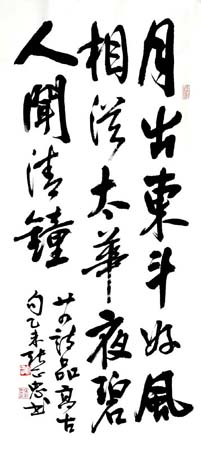 月出東斗好風
相從太華夜碧
人聞清鐘
廿四詩品高古
句乙未張忠书